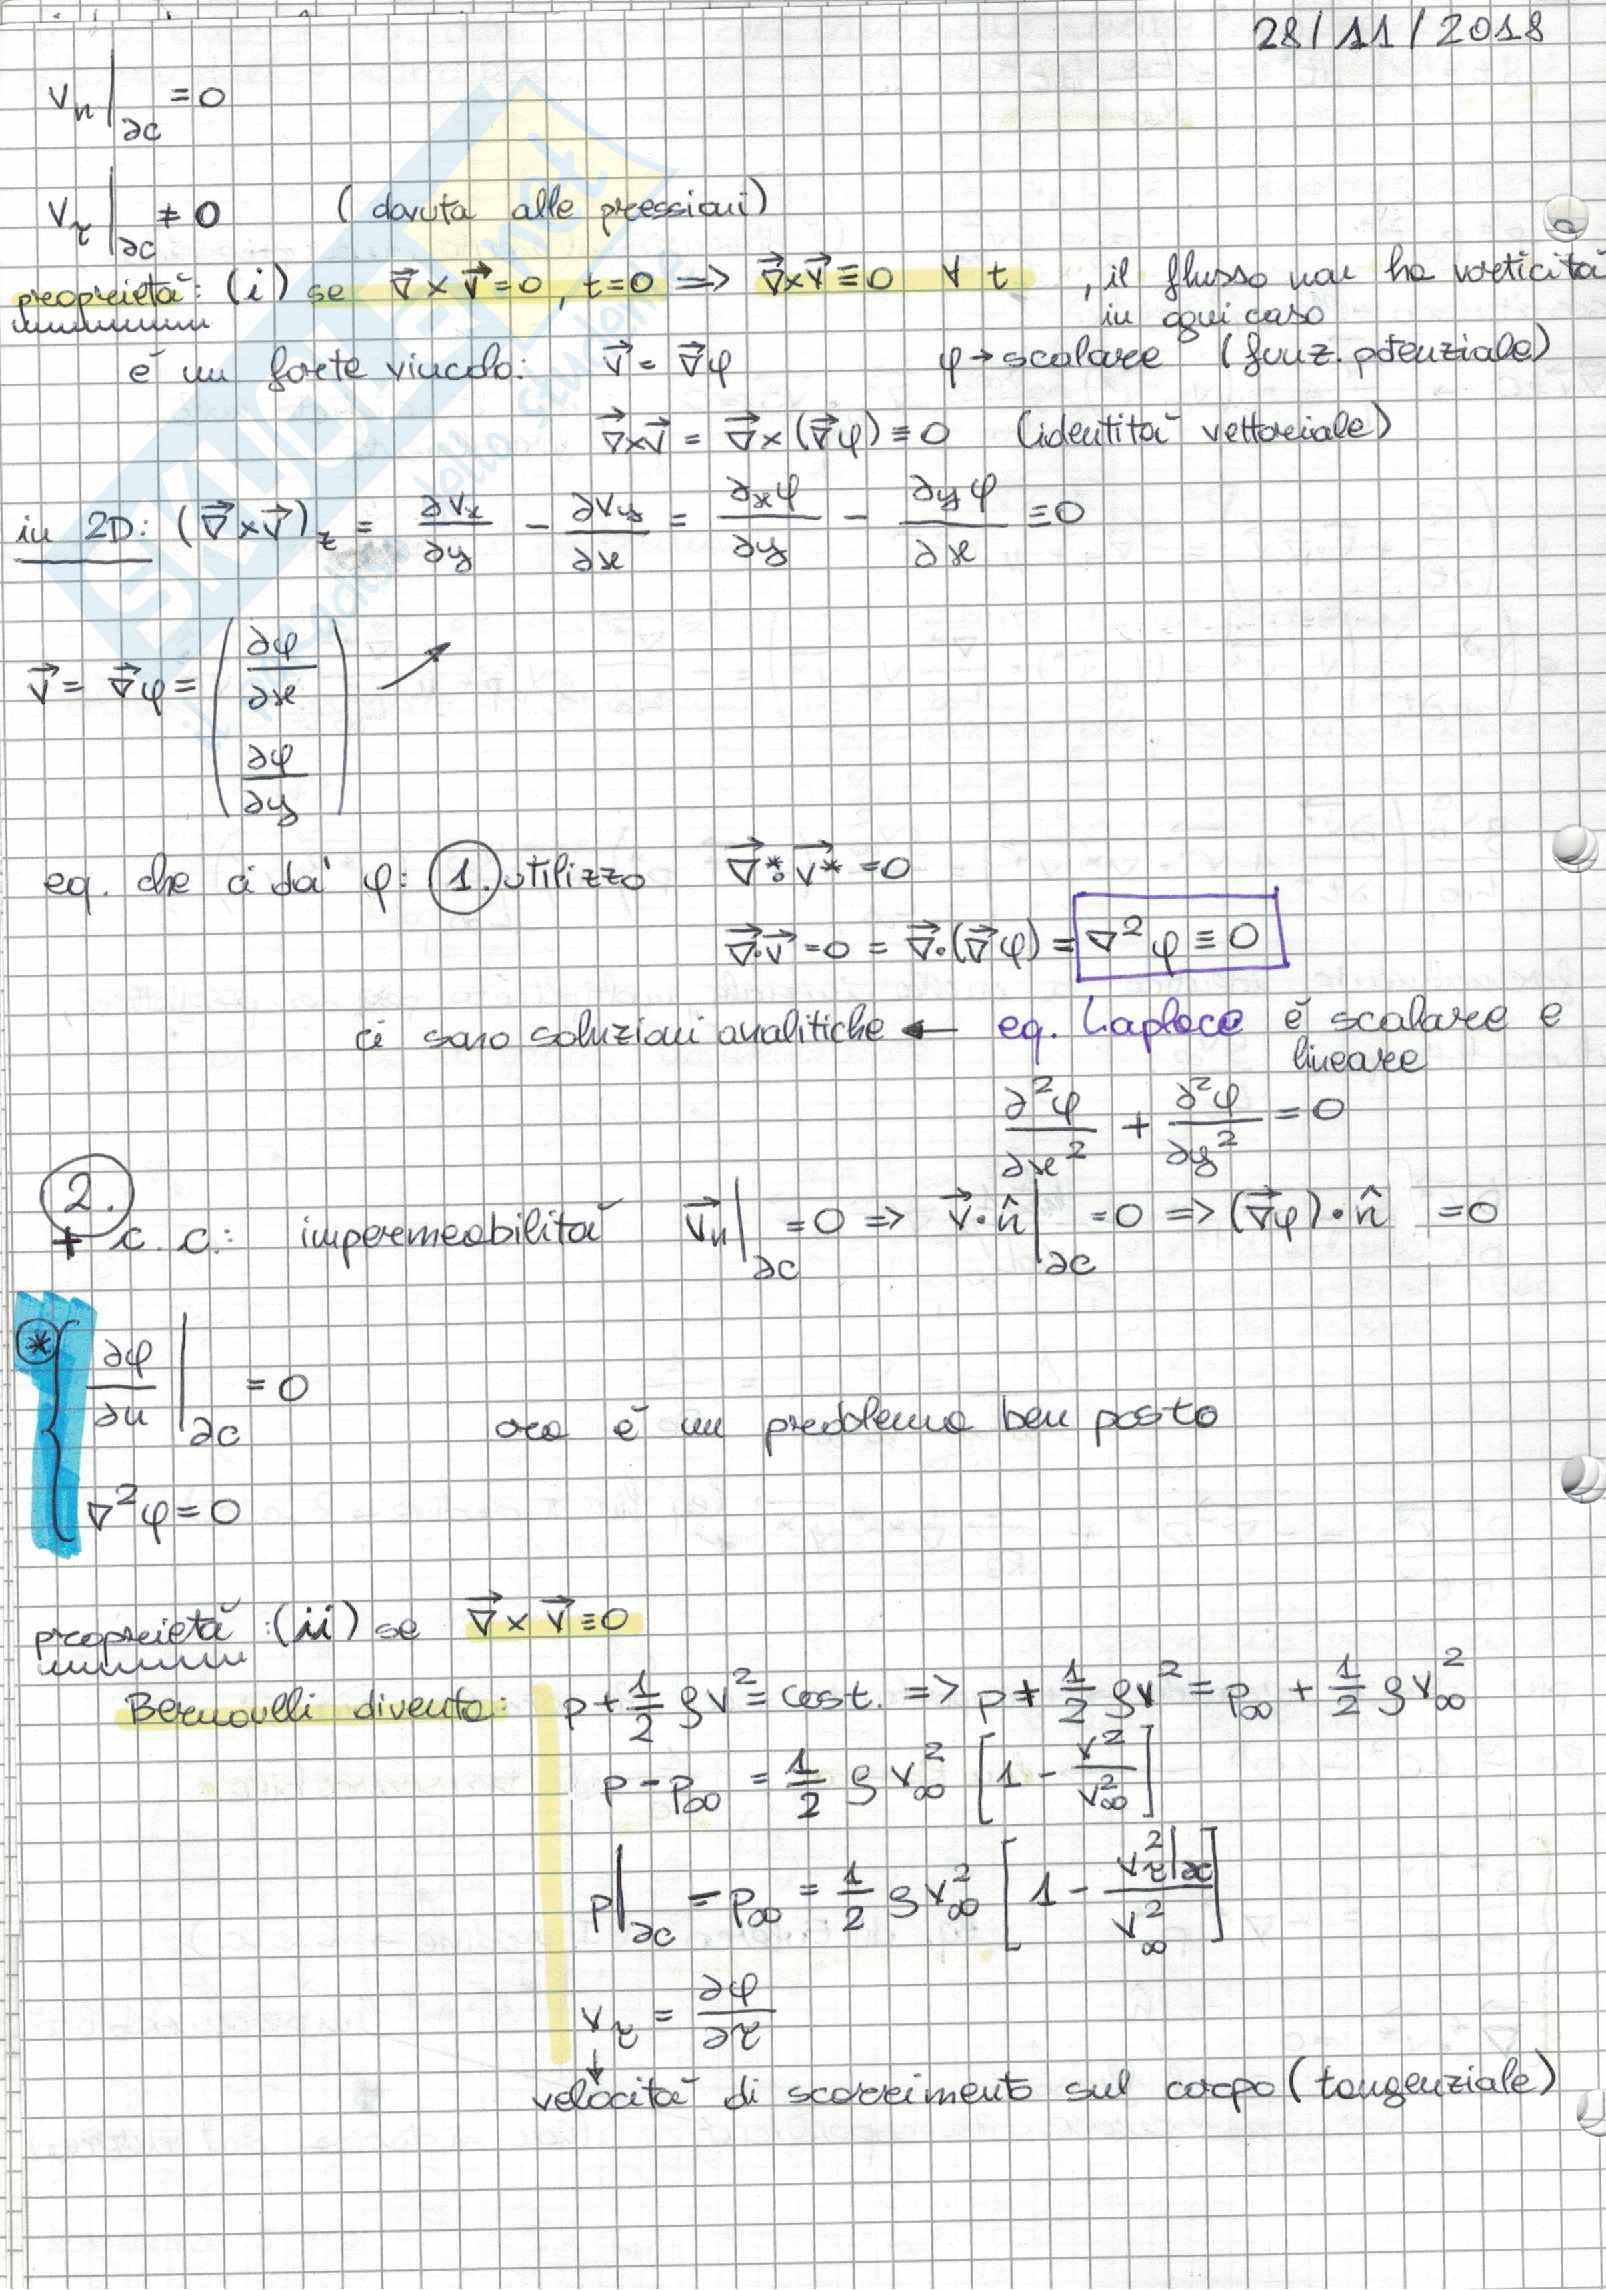 28/11/2018
vₙ|∂C = 0
v_τ|∂C ≠ 0 (dovuta alle pressioni)
proprietà: (i) se ∇⃗ × v⃗ = 0, t=0 => ∇⃗×v⃗ ≡ 0 ∀ t , il flusso non ha vorticità
in ogni caso
è un forte vincolo: v⃗ = ∇⃗φ φ → scalare (funz. potenziale)
∇⃗×v⃗ = ∇⃗×(∇⃗φ) ≡ 0 (identità vettoriale)
in 2D: (∇⃗×v⃗)_z = ∂vₓ/∂y − ∂v_y/∂x = ∂ₓφ/∂y − ∂_yφ/∂x ≡ 0
v⃗ = ∇⃗φ = (∂φ/∂x
∂φ/∂y)
eq. che ci dà φ: 1. utilizzo ∇⃗*·v⃗* = 0
∇⃗·v⃗ = 0 = ∇⃗·(∇⃗φ) = ∇²φ ≡ 0
ci sono soluzioni analitiche ← eq. Laplace è scalare e
lineare
∂²φ/∂x² + ∂²φ/∂y² = 0
2.
+ c.c.: impermeabilità v⃗ₙ|∂C = 0 => v⃗·n̂|∂C = 0 => (∇⃗φ)·n̂ = 0
* { ∂φ/∂n|∂C = 0
ora è un problema ben posto
∇²φ = 0
proprietà: (ii) se ∇⃗ × v⃗ ≡ 0
Bernoulli diventa: p + 1/2 ρv² = cost. => p + 1/2 ρv² = p∞ + 1/2 ρv∞²
p − p∞ = 1/2 ρv∞² [1 − v²/v∞²]
p|∂C − p∞ = 1/2 ρv∞² [1 − v_τ²|∂C/v∞²]
v_τ = ∂φ/∂τ
↓
velocità di scorrimento sul corpo (tangenziale)
SKUOLA.net
il portale dello studente